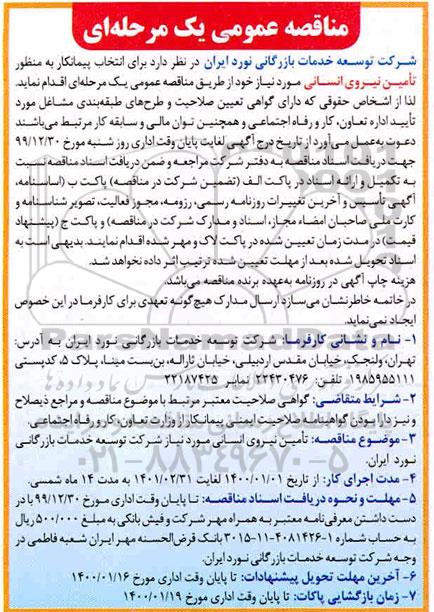 مناقصه عمومی یک مرحله‌ای
شرکت توسعه خدمات بازرگانی نورد ایران در نظر دارد برای انتخاب پیمانکار به منظور
تأمین نیروی انسانی مورد نیاز خود از طریق مناقصه عمومی یک مرحله‌ای اقدام نماید.
لذا از اشخاص حقوقی که دارای گواهی تعیین صلاحیت و طرح‌های طبقه‌بندی مشاغل مورد
تأیید اداره تعاون، کار و رفاه اجتماعی و همچنین توان مالی و سابقه کار مرتبط می‌باشند
دعوت به‌عمل می‌آورد از تاریخ درج آگهی لغایت پایان وقت اداری روز شنبه مورخ ۹۹/۱۲/۳۰
جهت دریافت اسناد مناقصه به دفتر شرکت مراجعه و ضمن دریافت اسناد مناقصه نسبت
به تکمیل و ارائه اسناد در پاکت الف (تضمین شرکت در مناقصه) پاکت ب (اساسنامه،
آگهی تأسیس و آخرین تغییرات روزنامه رسمی، رزومه، مجوز فعالیت، تصویر شناسنامه و
کارت ملی صاحبان امضاء مجاز، اسناد و مدارک شرکت در مناقصه) و پاکت ج (پیشنهاد
قیمت) در مدت زمان تعیین شده در پاکت لاک و مهر شده اقدام نمایند. بدیهی است به
اسناد تحویل شده بعد از مهلت تعیین شده ترتیب اثر داده نخواهد شد.
هزینه چاپ آگهی در روزنامه به‌عهده برنده مناقصه می‌باشد.
در خاتمه خاطرنشان می‌سازد ارسال مدارک هیچ‌گونه تعهدی برای کارفرما در این خصوص
ایجاد نمی‌نماید.
۱- نام و نشانی کارفرما: شرکت توسعه خدمات بازرگانی نورد ایران به آدرس:
تهران، ولنجک، خیابان مقدس اردبیلی، خیابان ثاراله، بن‌بست مینا، پلاک ۵، کدپستی
۱۹۸۵۹۵۵۱۱۱ تلفن: ۲۲۴۳۰۴۷۶ نمابر ۲۲۱۸۷۴۲۵
۲- شرایط متقاضی: گواهی صلاحیت معتبر مرتبط با موضوع مناقصه و مراجع ذیصلاح
و نیز دارا بودن گواهینامه صلاحیت ایمنی پیمانکار از وزارت تعاون، کار و رفاه اجتماعی.
۳- موضوع مناقصه: تأمین نیروی انسانی مورد نیاز شرکت توسعه خدمات بازرگانی
نورد ایران.
۴- مدت اجرای کار: از تاریخ ۱۴۰۰/۰۱/۰۱ لغایت ۱۴۰۱/۰۲/۳۱ به مدت ۱۴ ماه شمسی.
۵- مهلت و نحوه دریافت اسناد مناقصه: تا پایان وقت اداری مورخ ۹۹/۱۲/۳۰ با در
دست داشتن معرفی‌نامه معتبر به همراه مهر شرکت و فیش بانکی به مبلغ ۵۰۰/۰۰۰ ریال
به حساب شماره ۱-۴۰۸۱۴۲۶-۱۱-۳۰۱۵ بانک قرض‌الحسنه مهر ایران شعبه فاطمی در
وجه شرکت توسعه خدمات بازرگانی نورد ایران.
۶- آخرین مهلت تحویل پیشنهادات: تا پایان وقت اداری مورخ ۱۴۰۰/۰۱/۱۶
۷- زمان بازگشایی پاکات: تا پایان وقت اداری مورخ ۱۴۰۰/۰۱/۱۹
۰۲۱-۸۸۳۴۹۶۷۰-۵